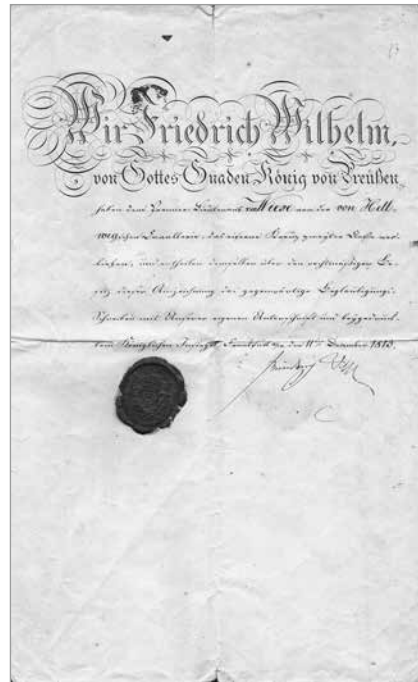 Wir Friedrich Wilhelm,
von Gottes Gnaden König von Preußen
haben dem Premier Lieutenant von der von Hell-
wigschen Cavallerie, das eiserne Kreuz zweyter Classe ver-
liehen, und ertheilen demselben über den rechtmäßigen Be-
sitz dieser Auszeichnung das gegenwärtige Beglaubigungs-
Schreiben mit Unserer eigenen Unterschrift und beygedruck-
tem Königlichen Insiegel. Frankfurt den 11 December 1813.